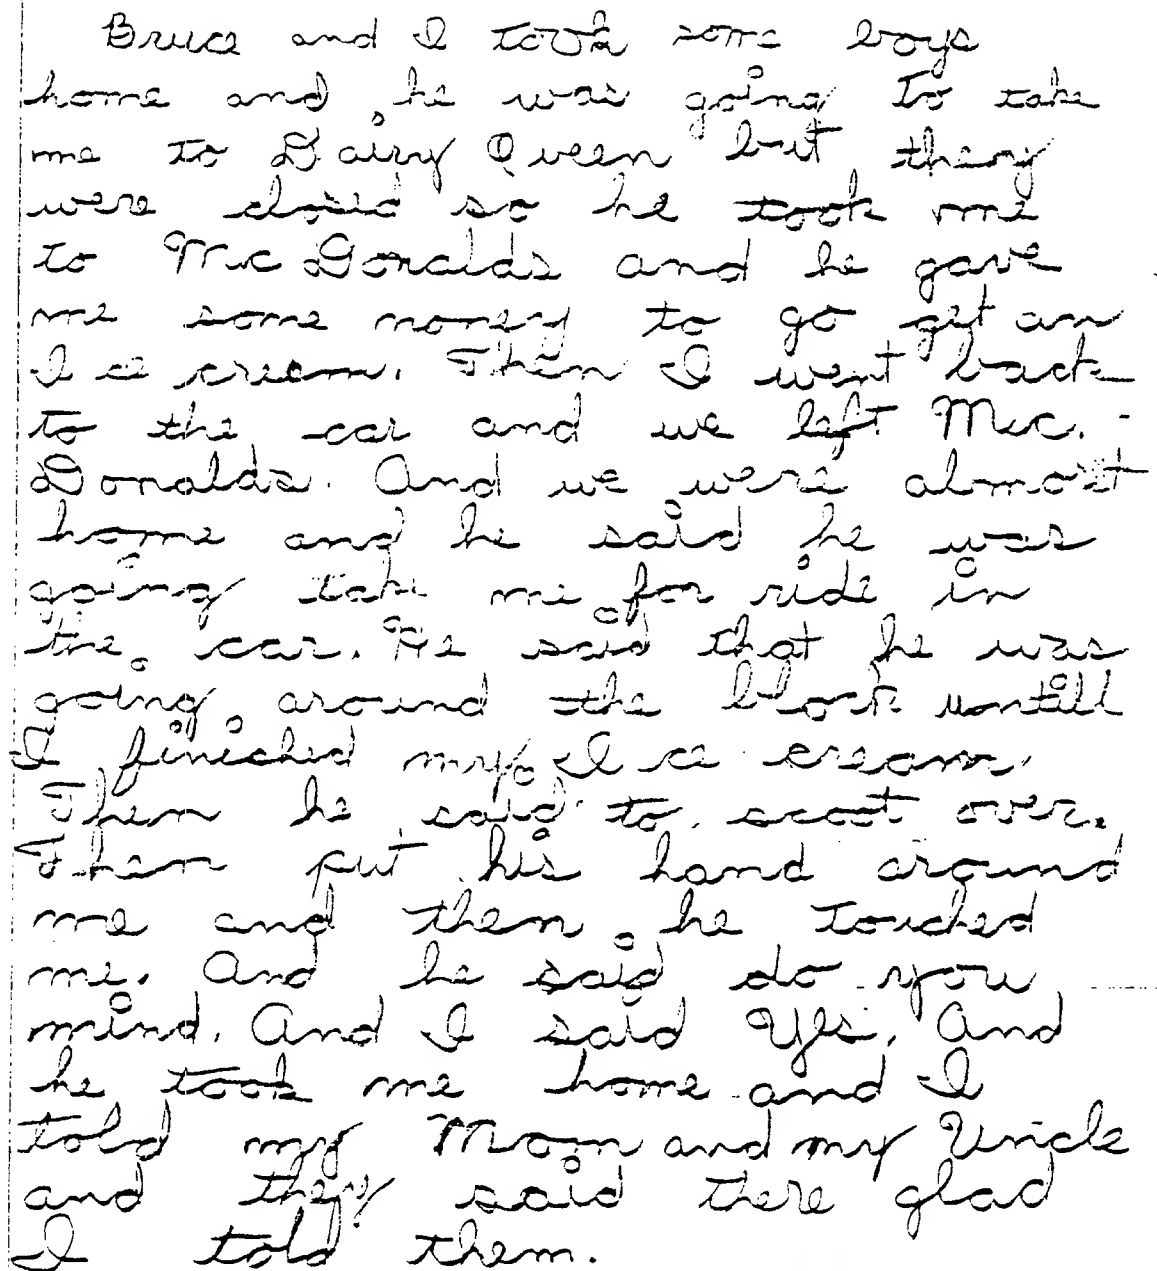 Bruce and I took some boys
home and he was going to take
me to Dairy Queen but they
were closed so he took me
to McDonalds and he gave
me some money to go get an
I ce cream. Then I went back
to the car and we left Mc.-
Donalds. And we were almost
home and he said he was
going take me for ride in
the car. He said that he was
going around the block untill
I finiched my I ce cream.
Then he said to scoot over.
Then put his hand around
me and then he touched
me. And he said do you
mind. And I said Yes. And
he took me home and I
told my Mom and my Uncle
and they said there glad
I told them.